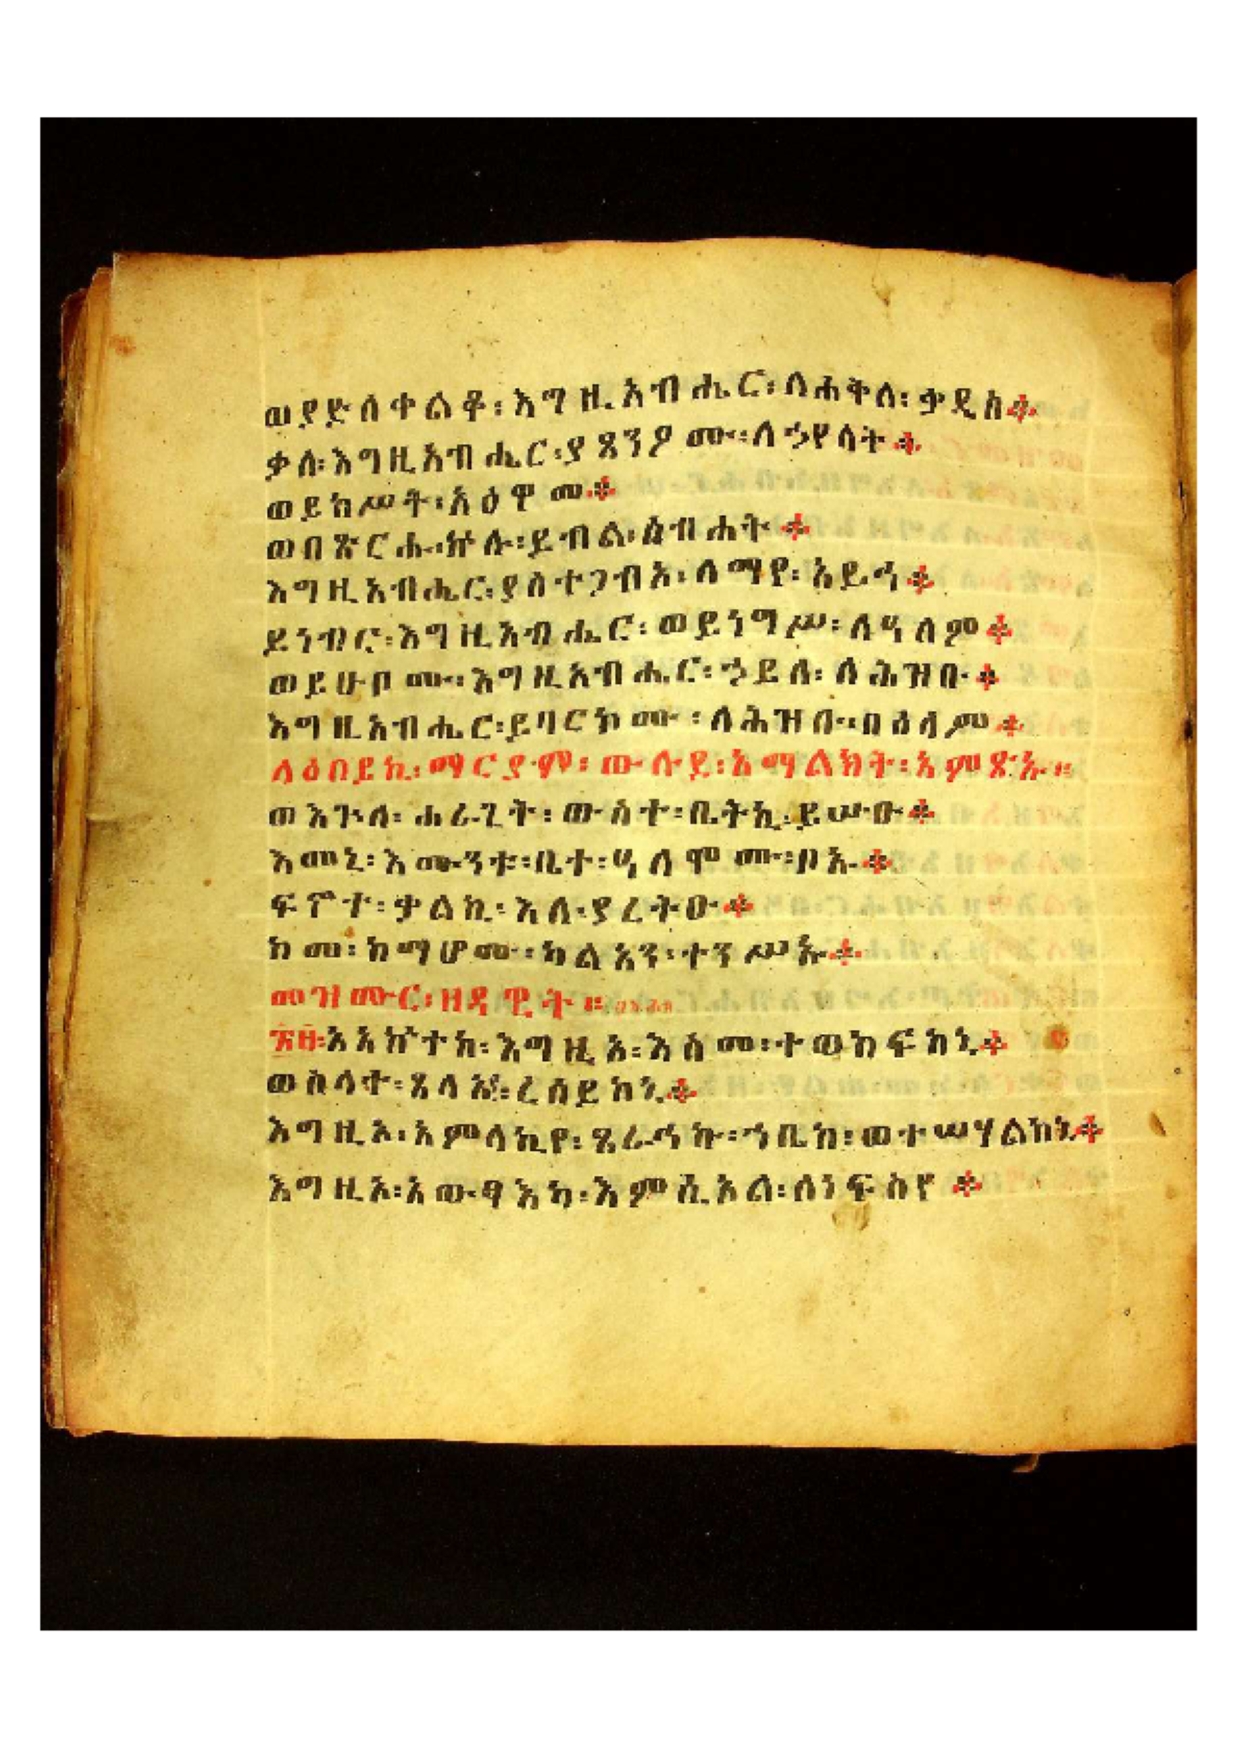 ወያድለቀልቆ፡ እግዚአብሔር፡ ለሐቅለ፡ ቃዴስ።
ቃለ፡ እግዚአብሔር፡ ያጸንዖሙ፡ ለኃየላት።
ወይከሥት፡ አዕዋመ።
ወበጽርሑ፡ ኵሉ፡ ይብል፡ ስብሐት።
እግዚአብሔር፡ ያስተጋብኦ፡ ለማየ፡ አይኅ።
ይነብር፡ እግዚአብሔር፡ ወይነግሥ፡ ለዓለም።
ወይሁቦሙ፡ እግዚአብሔር፡ ኃይለ፡ ለሕዝቡ።
እግዚአብሔር፡ ይባርኮሙ፡ ለሕዝቡ፡ በሰላም።
ለዕበይኪ፡ ማርያም፡ ውሉደ፡ አማልክት፡ አምጽኡ።
ወእጐለ፡ ሐራጊት፡ ውስተ፡ ቤትኪ፡ ይሡዑ።
እመኒ፡ እሙንቱ፡ ቤተ፡ ዓለሞሙ፡ ቦኡ።
ፍኖተ፡ ቃልኪ፡ እለ፡ ያረትዑ።
ከመ፡ ከማሆሙ፡ ካልአን፡ ተንሥኡ።
መዝሙር፡ ዘዳዊት።
፳፱፡ አአኵተከ፡ እግዚኦ፡ እስመ፡ ተወከፍከኒ።
ወስላተ፡ ጸላእ፡ ረሰይከኒ።
እግዚኦ፡ አምላኪየ፡ ጸራኅኩ፡ ኀቤከ፡ ወተሣሃልከኒ።
እግዚኦ፡ አውፃእካ፡ እምሲኦል፡ ለነፍስየ።